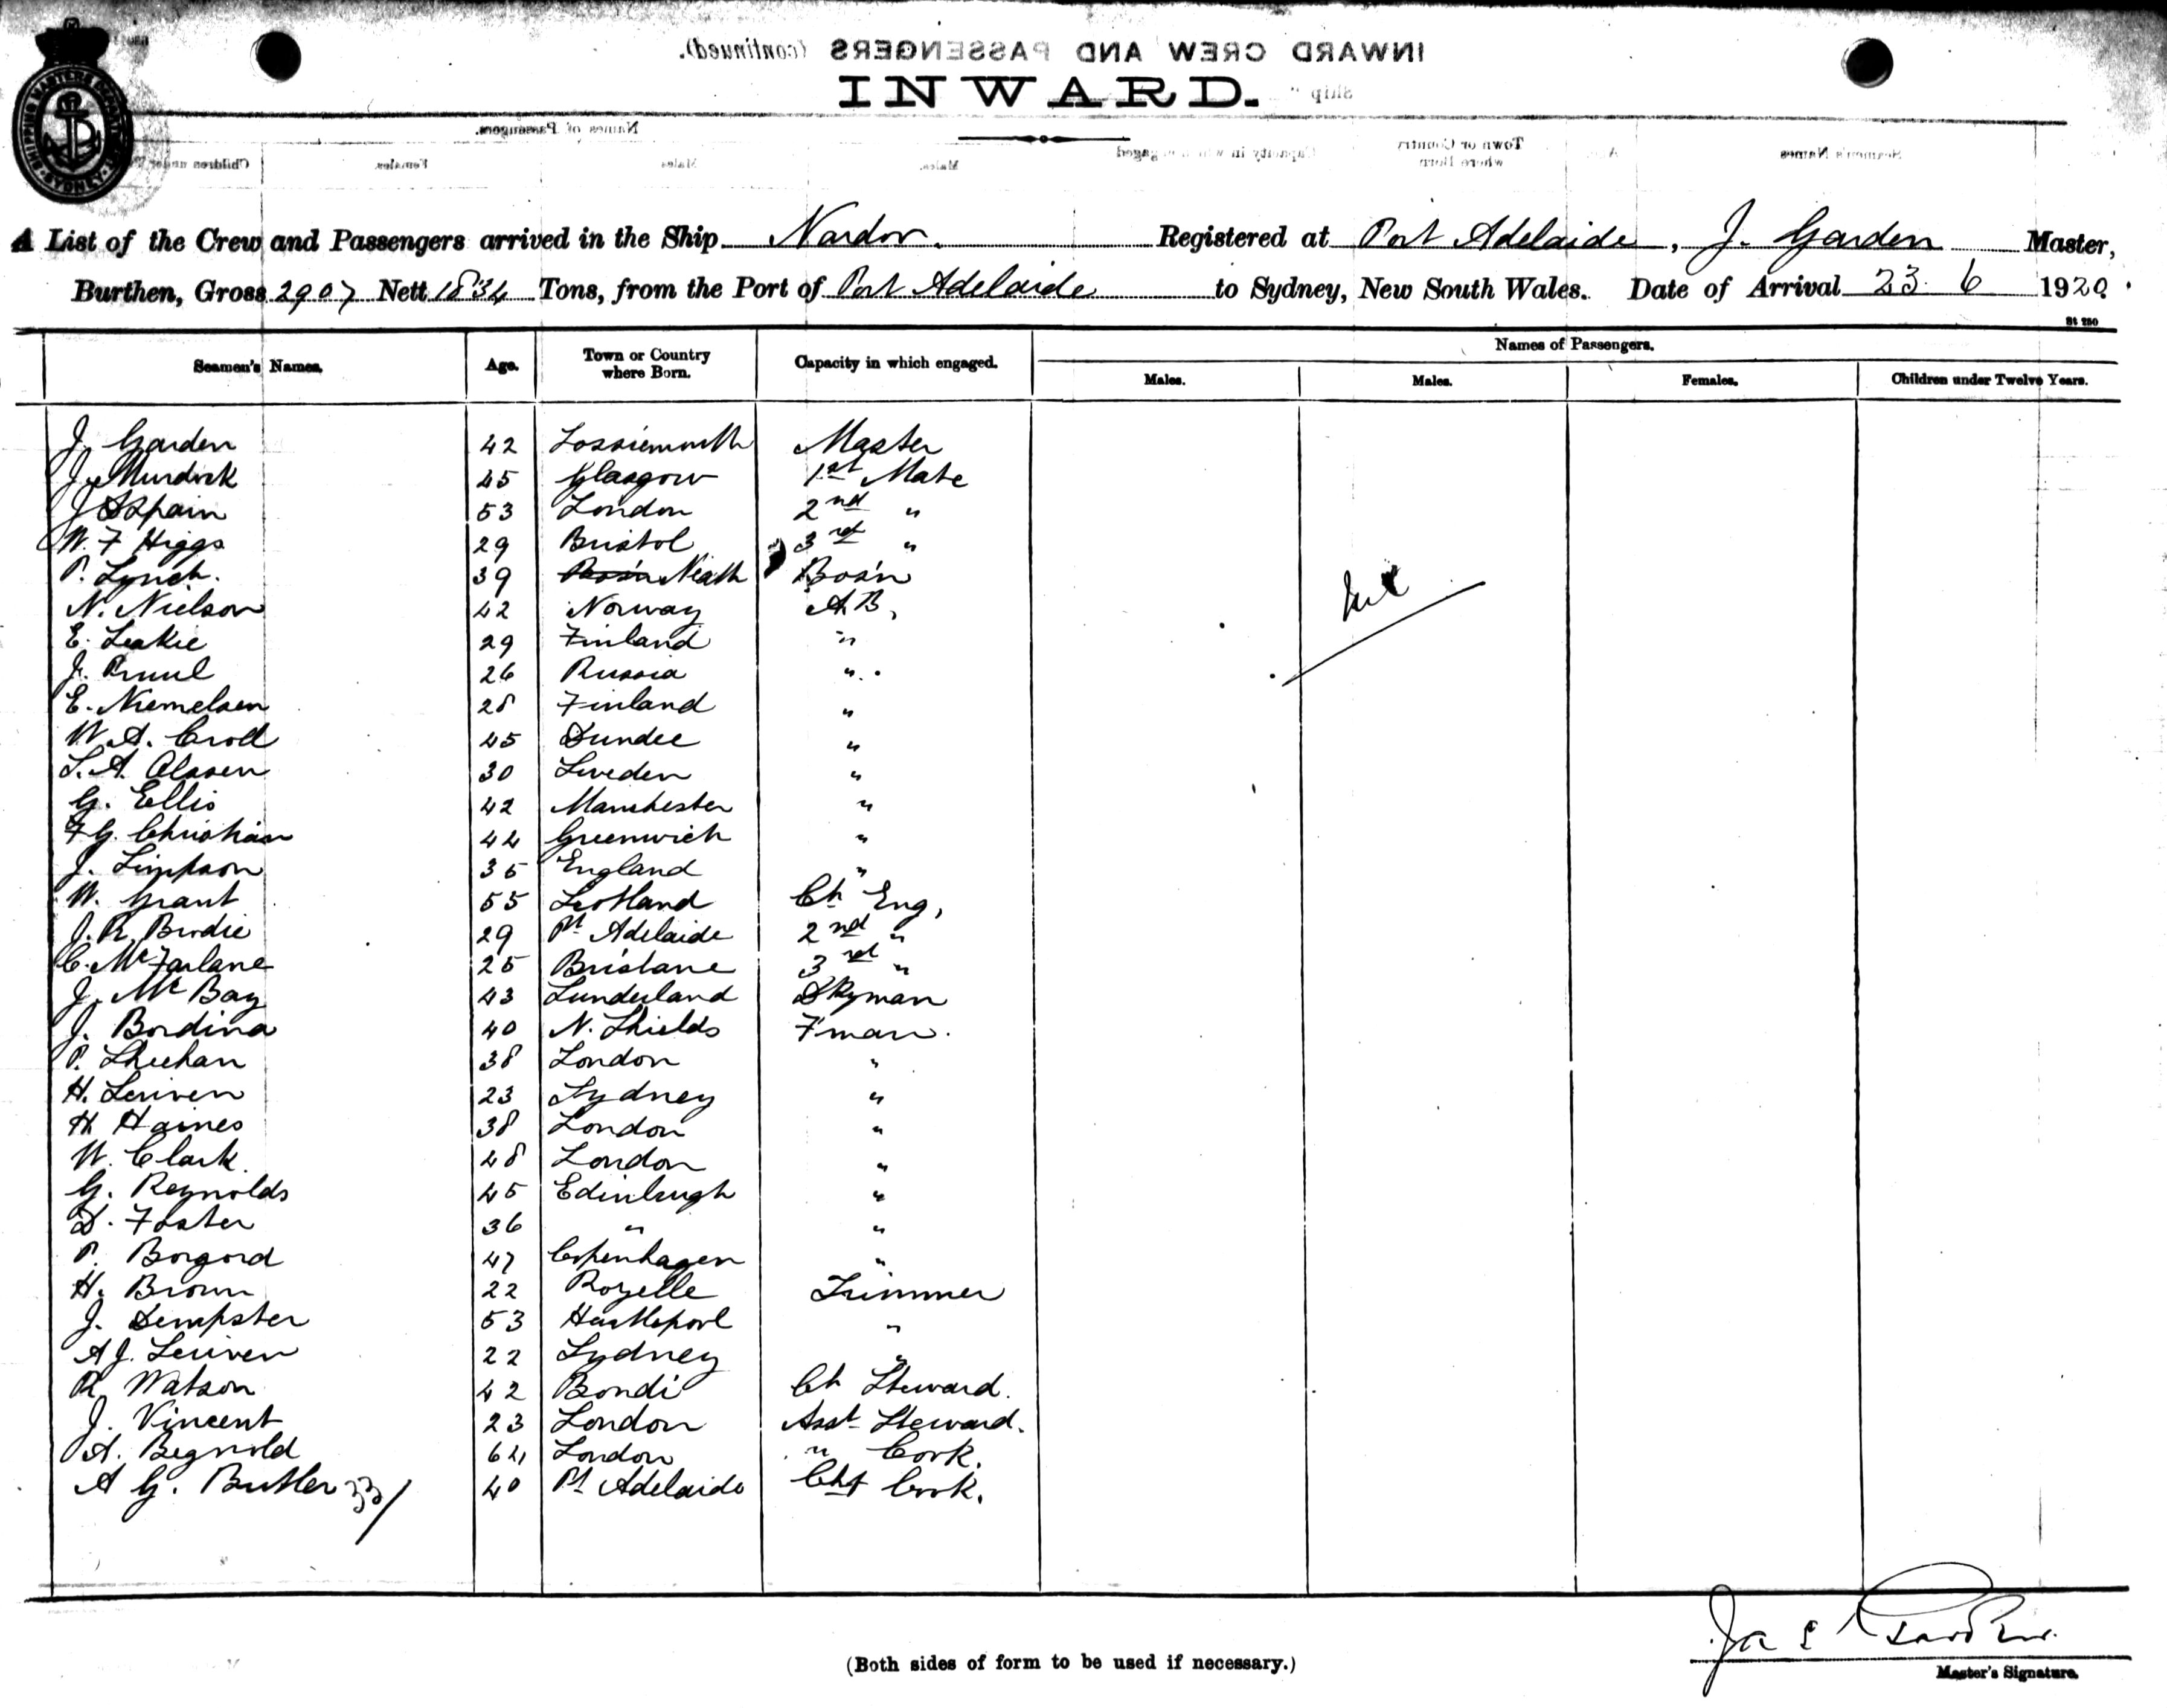 INWARD CREW AND PASSENGERS (continued).
INWARD.
Ship
Names of Passengers.
Children under Females. Males Males. Capacity in which engaged Town or Country where Born Seamen's Names
SHIPPING MASTERS DEPARTMENT SYDNEY
A List of the Crew and Passengers arrived in the Ship Nardoo. Registered at Port Adelaide, J. Garden Master,
Burthen, Gross 2907 Nett 1834 Tons, from the Port of Port Adelaide to Sydney, New South Wales. Date of Arrival 23 6 1920.
St 250
Seamen's Names. Age. Town or Country where Born. Capacity in which engaged. Names of Passengers.
Males. Males. Females. Children under Twelve Years.
J. Garden 42 Lossiemouth Master
J. Murdock 45 Glasgow 1st Mate
J Spain 53 London 2nd "
W. F Higgs 29 Bristol 3rd "
P. Lynch. 39 Bos'n Neath Bos'n
N. Nielson 42 Norway A.B,
E. Leakie 29 Finland "
J. 26 Russia "
E. Niemelsen 28 Finland "
W. A. Croll 45 Dundee "
S. A. Olssen 30 Sweden "
G. Ellis 42 Manchester "
F G. Christian 44 Greenwich "
J. Simpson 35 England "
W. Grant 55 Scotland Ch Eng,
J. R. Brodie 29 Pt Adelaide 2nd "
C. McFarlane 25 Brisbane 3rd "
J. McBay 43 Sunderland Dkyman
J. Bordina 40 N. Shields F'man.
P. Sheehan 38 London "
H. Leuven 23 Sydney "
H Haines 38 London "
W. Clark. 48 London "
G. Reynolds 45 Edinburgh "
D. Foster 36 " "
P. Borgord 47 Copenhagen "
H. Brown 22 Rozelle Trimmer
J. Dempster 53 Hartlepool "
A J. Leuven 22 Sydney "
R. Watson 42 Bondi Ch Steward.
J. Vincent 23 London Asst Steward.
A. Begnold 64 London " Cook.
A G. Butler 33/ 40 Pt Adelaide Chf Cook.
Nil
(Both sides of form to be used if necessary.)
Jas Garden
Master's Signature.